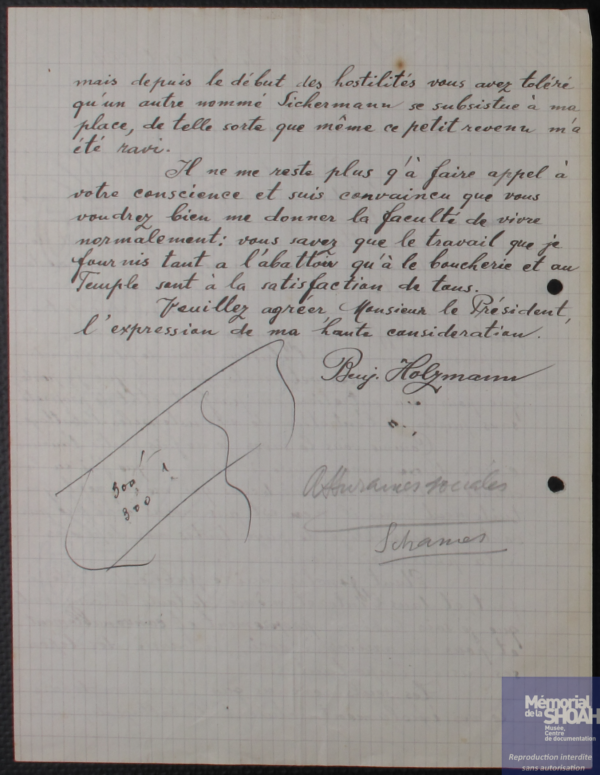 mais depuis le début des hostilités vous avez toléré
qu'un autre nommé Sichermann se subsistue à ma
place, de telle sorte que même ce petit revenu m'a
été ravi.
Il ne me reste plus q'à faire appel à
votre conscience et suis convaincu que vous
voudrez bien me donner la faculté de vivre
normalement: vous savez que le travail que je
fournis tant a l'abattoir qu'à le boucherie et au
Temple sont a la satisfaction de tous.
Veuillez agréer, Monsieur le Président,
l'expression de ma haute consideration.
Benj. Holzmann
300
300
Assurances sociales
Schames
Mémorial
de la SHOAH
Musée,
Centre
de documentation
Reproduction interdite
sans autorisation